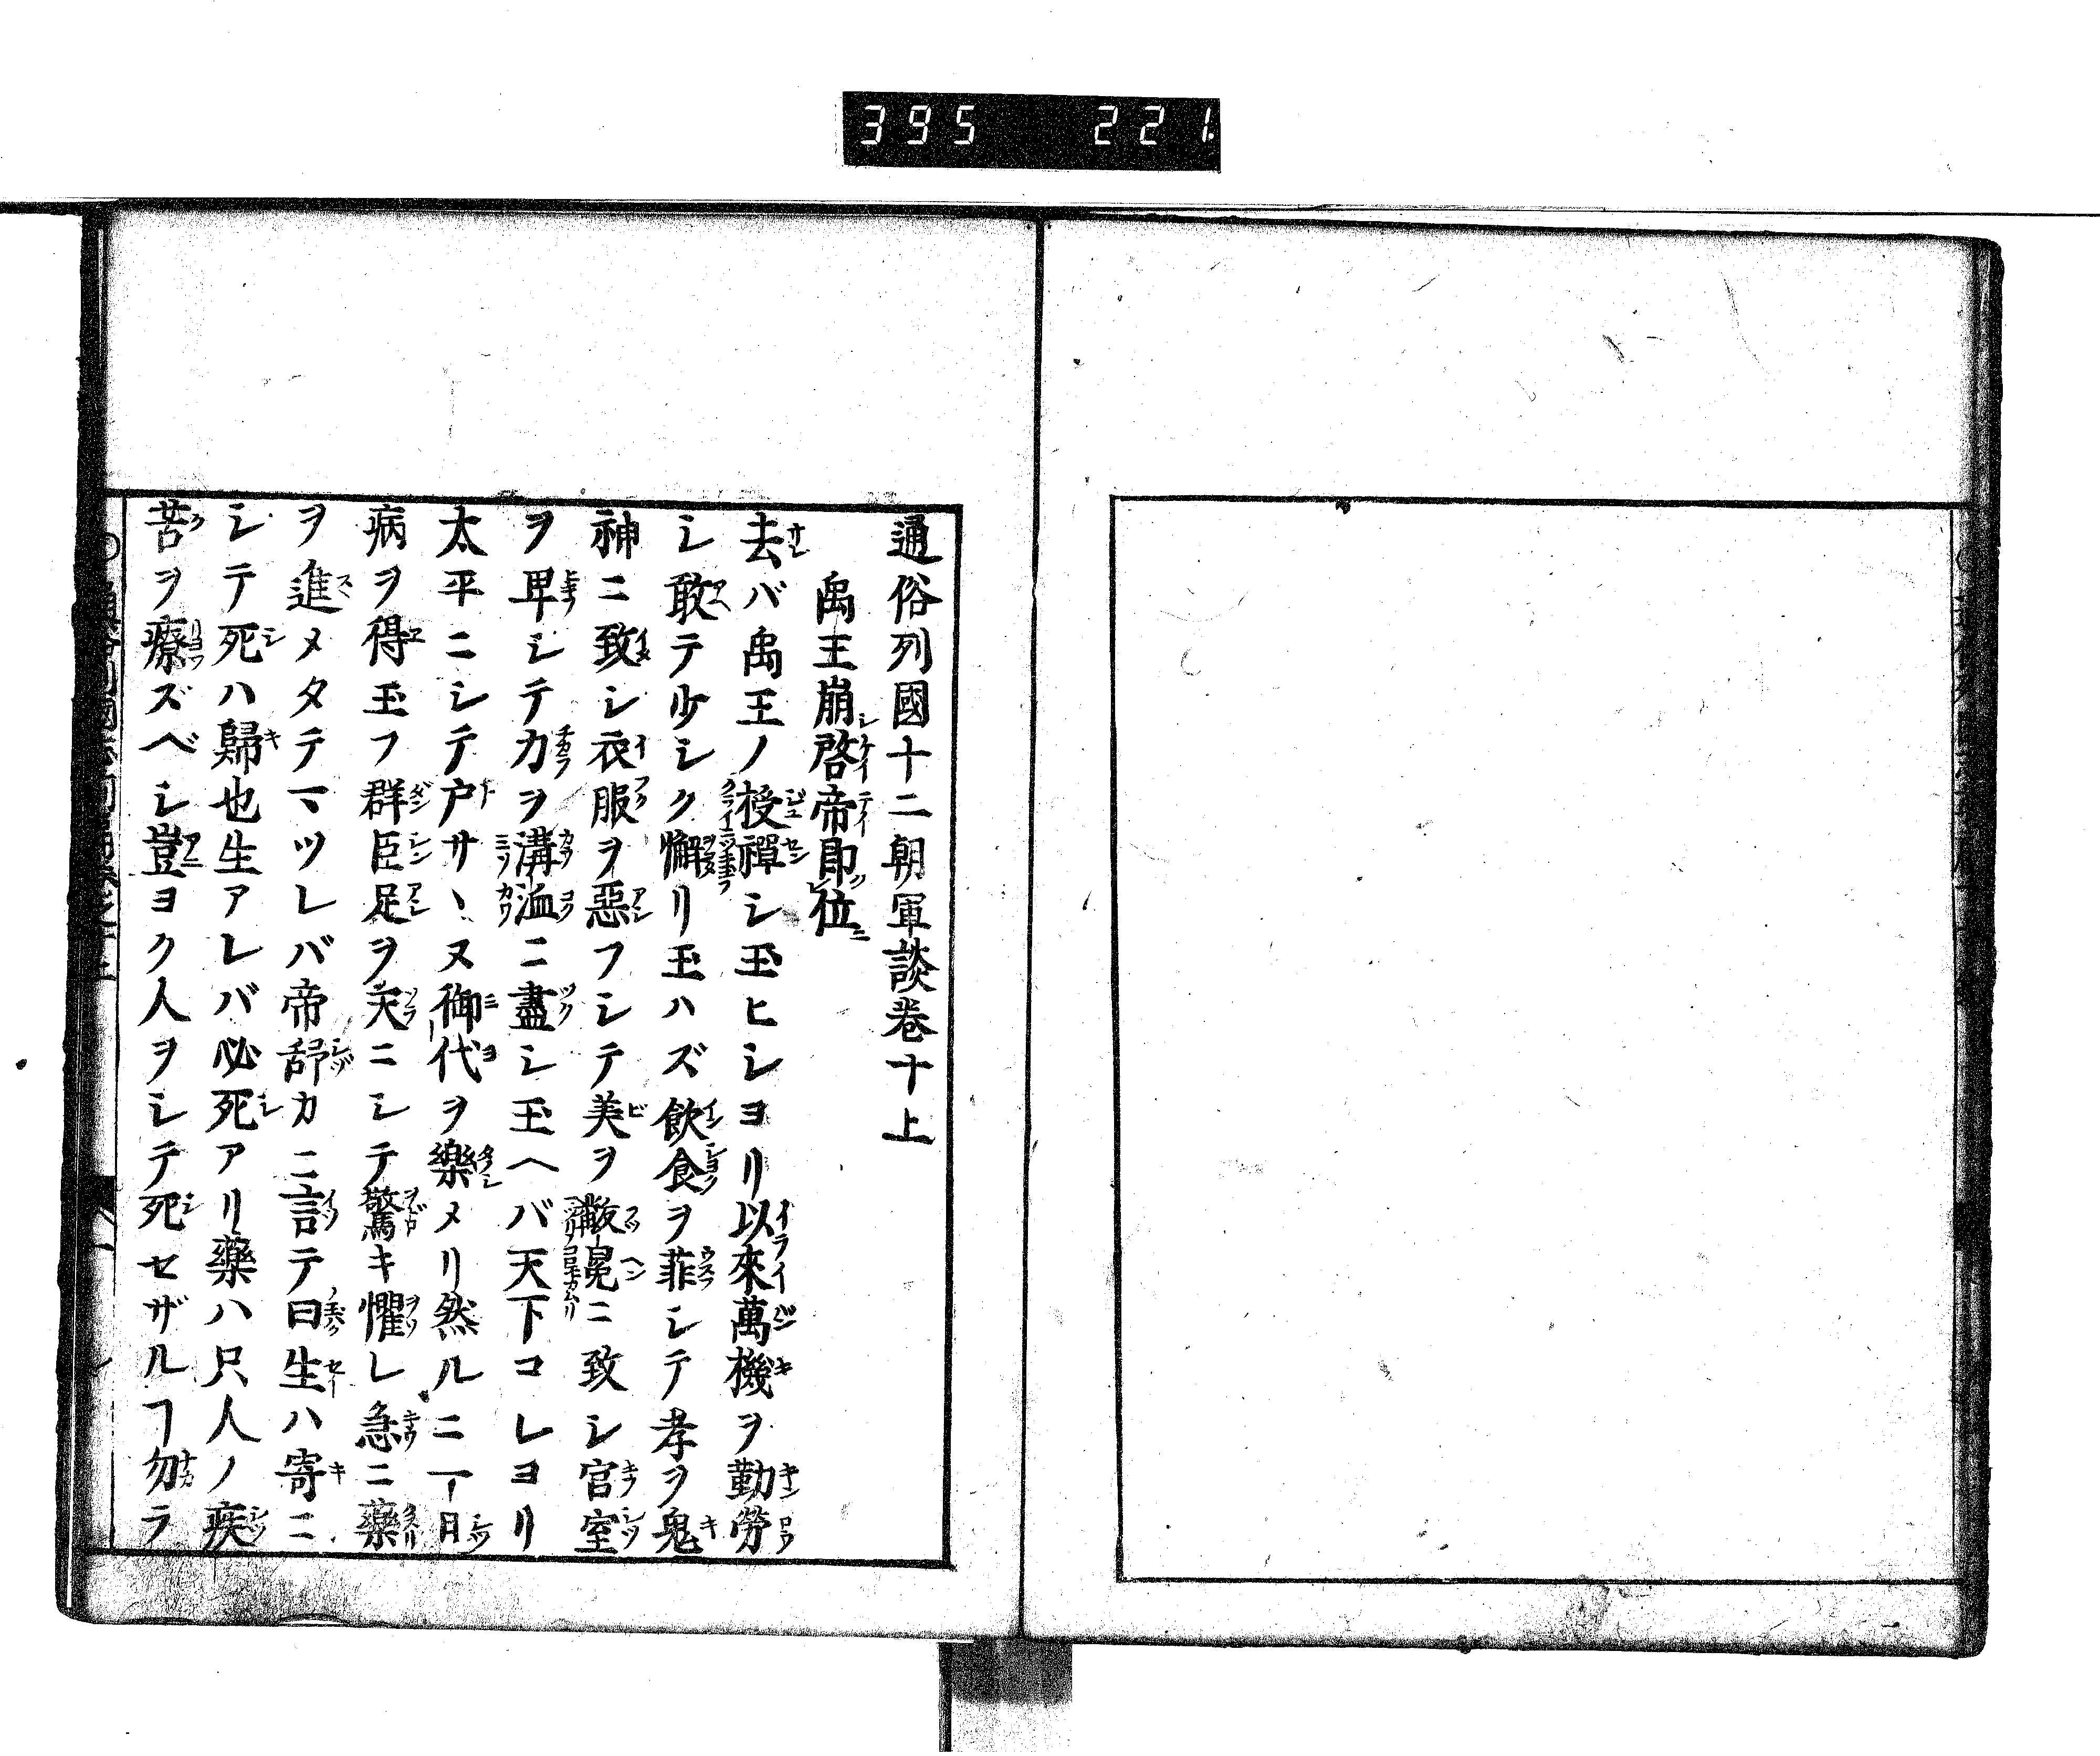 395 221.
通俗列國十二朝軍談卷十上
禹王崩シ啓帝即ク位ニ
去バ禹王ノ授禪シ玉ヒシヨリ以來萬機ヲ勤勞
シ敢テ少シク懈リ玉ハズ飲食ヲ菲シテ孝ヲ鬼
神ニ致シ衣服ヲ惡フシテ美ヲ黻冕ニ致シ宮室
ヲ卑シテ力ヲ溝洫ニ盡シ玉ヘバ天下コレヨリ
太平ニシテ戸サヽヌ御代ヲ樂メリ然ルニ一日
病ヲ得玉フ群臣足ヲ天ニシテ驚キ懼レ急ニ藥
ヲ進メタテマツレバ帝舒カニ言テ曰生ハ寄ニ
シテ死ハ歸也生アレバ必死アリ藥ハ只人ノ疾
苦ヲ療ズベシ豈ヨク人ヲシテ死セザルヿ勿ラ